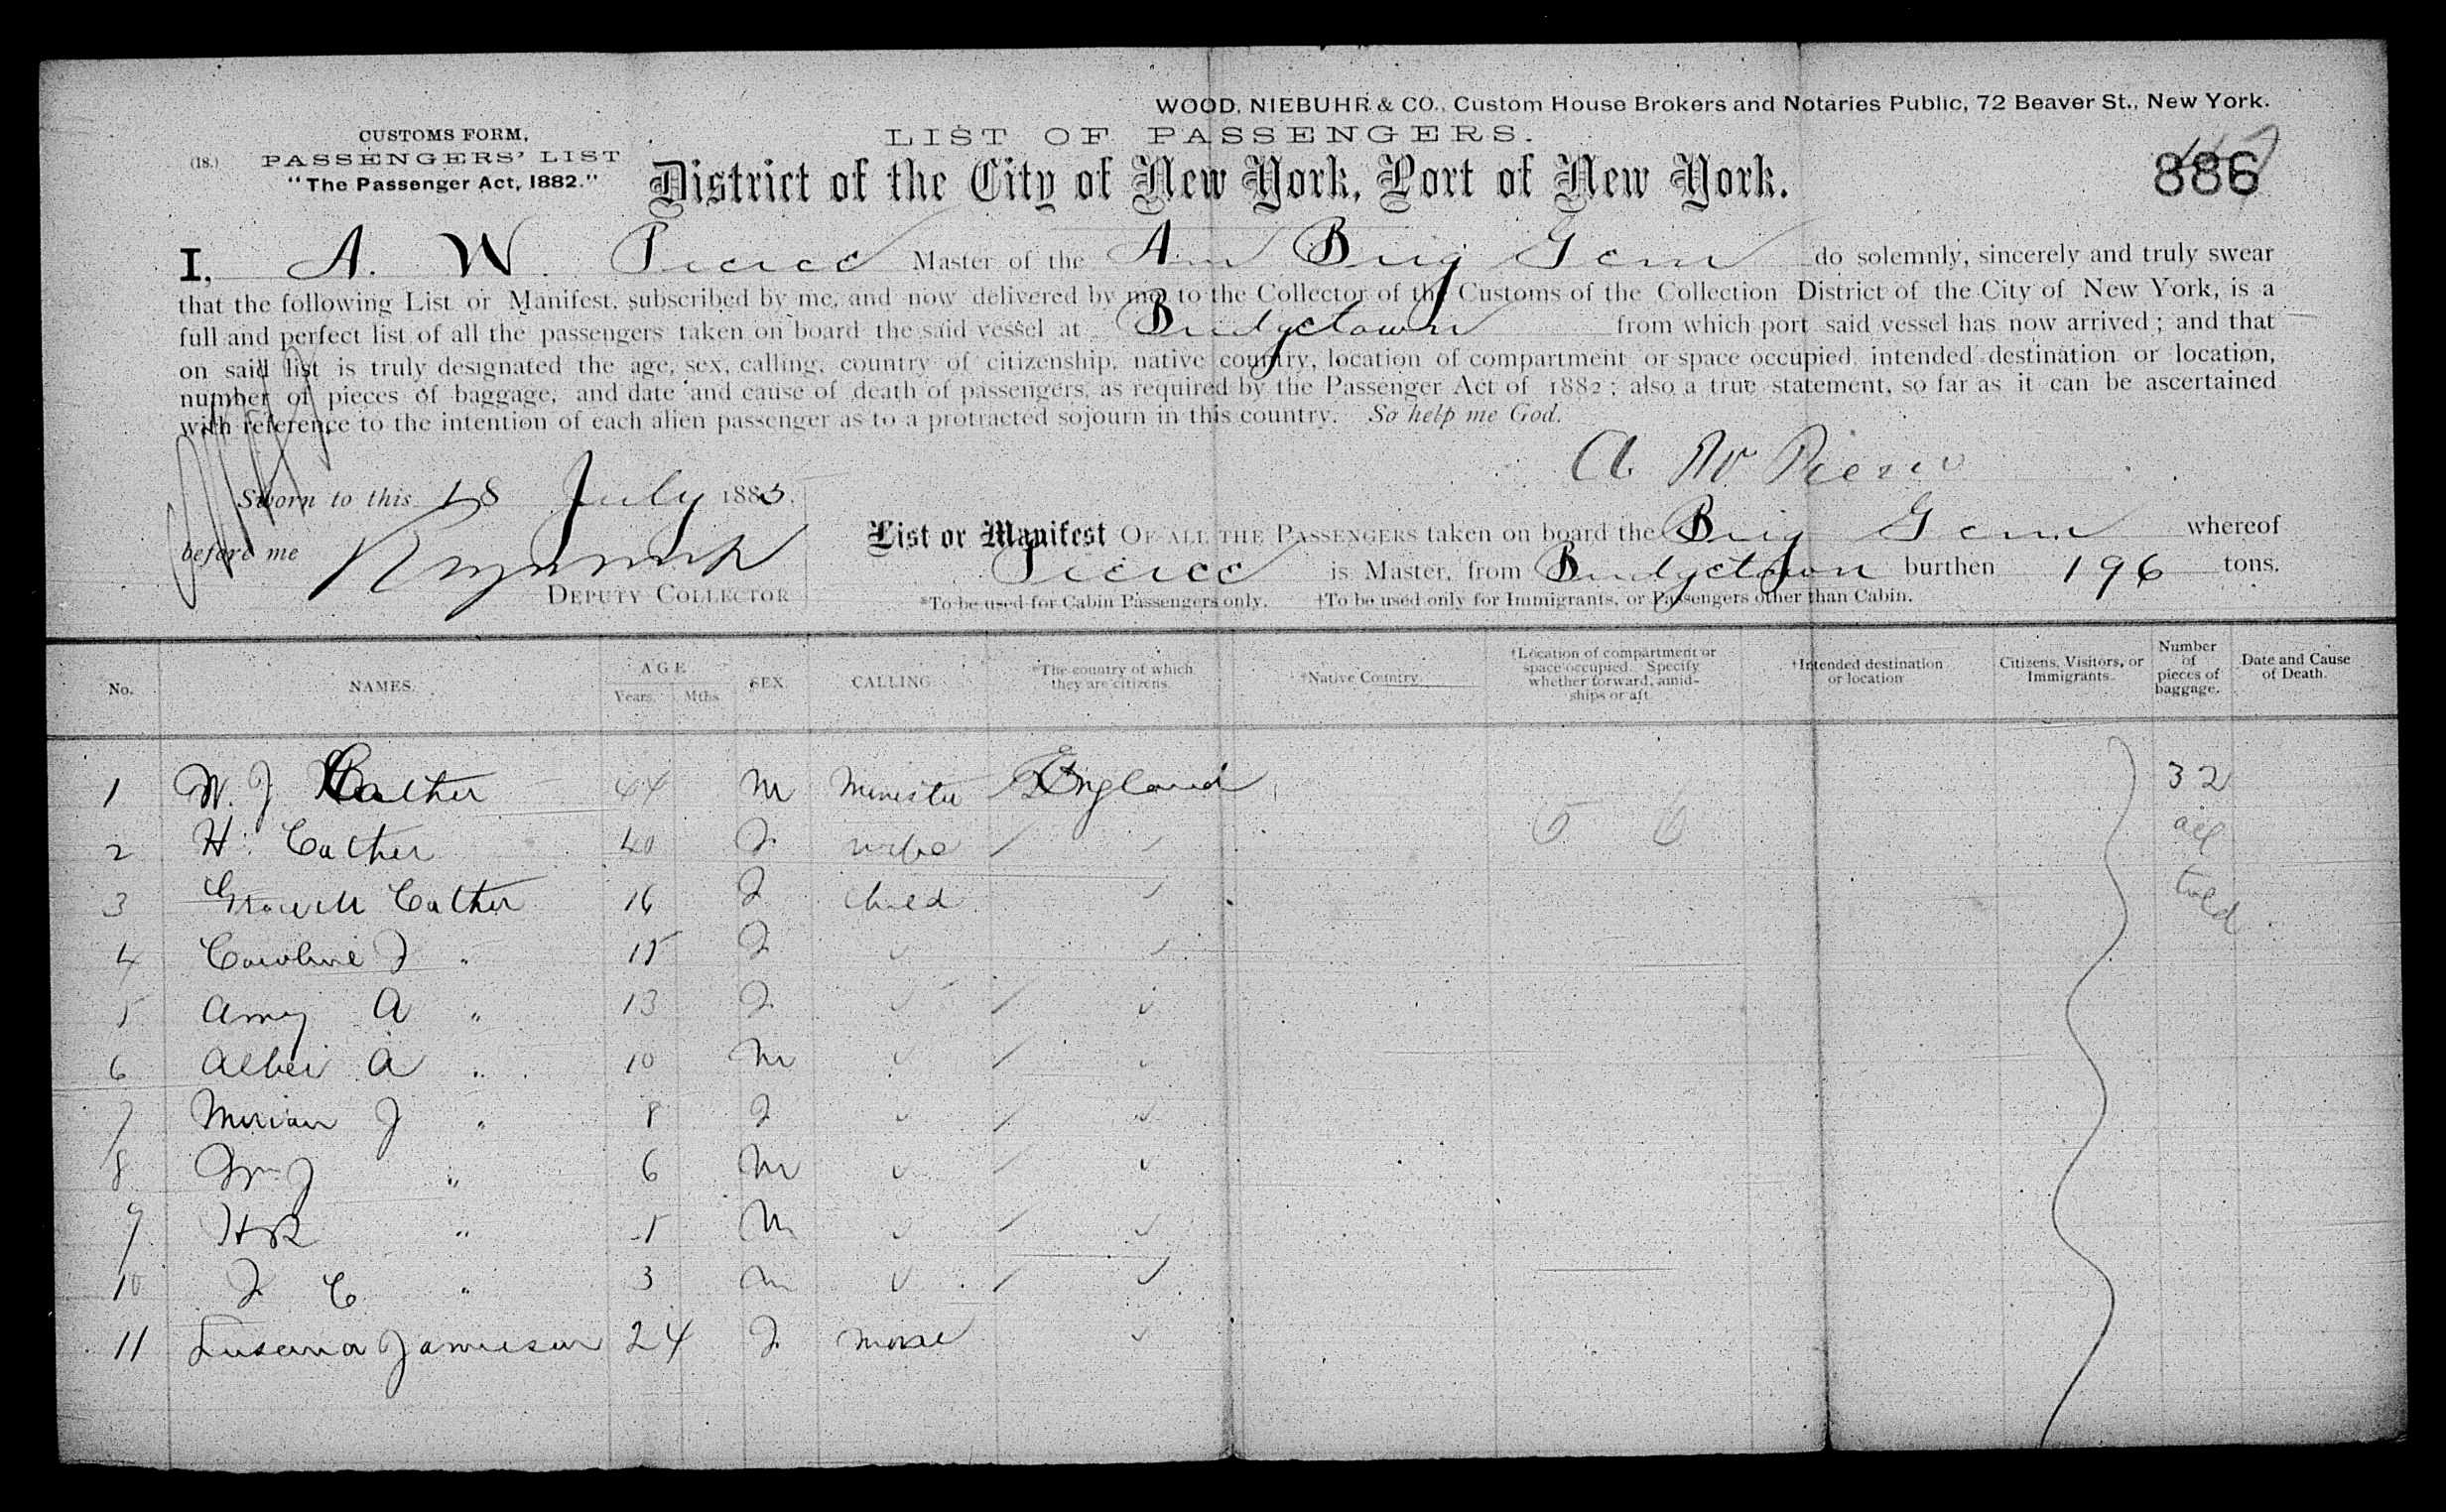 WOOD, NIEBUHR & CO., Custom House Brokers and Notaries Public, 72 Beaver St., New York.
CUSTOMS FORM,
(18.) PASSENGERS' LIST
"The Passenger Act, 1882."
LIST OF PASSENGERS.
District of the City of New York, Port of New York.
886
I, A. W. Pierce Master of the Am Brig Gem do solemnly, sincerely and truly swear
that the following List or Manifest, subscribed by me, and now delivered by me to the Collector of the Customs of the Collection District of the City of New York, is a
full and perfect list of all the passengers taken on board the said vessel at Bridgetown from which port said vessel has now arrived; and that
on said list is truly designated the age, sex, calling, country of citizenship, native country, location of compartment or space occupied, intended destination or location,
number of pieces of baggage, and date and cause of death of passengers, as required by the Passenger Act of 1882; also a true statement, so far as it can be ascertained
with reference to the intention of each alien passenger as to a protracted sojourn in this country. So help me God.
A W Pierce
Sworn to this 18 July 1885.
before me
DEPUTY COLLECTOR
List or Manifest OF ALL THE PASSENGERS taken on board the Brig Gem whereof
Pierce is Master, from Bridgetown burthen 196 tons.
*To be used for Cabin Passengers only. †To be used only for Immigrants, or Passengers other than Cabin.
No. NAMES. AGE Years. Mths. SEX. CALLING. *The country of which they are citizens. †Native Country †Location of compartment or space occupied. Specify whether forward, amidships or aft. †Intended destination or location Citizens, Visitors, or Immigrants. Number of pieces of baggage. Date and Cause of Death.
1 W. J Cather 44 M Minister England 32
2 H. Cather 40 F wife all
3 Cather 16 F Child told
4 Caroline J " 15 F
5 Amy A " 13 F
6 A " 10 M
7 Miriam J " 8 F
8 Wm J " 6 M
9 HR " 5 M
10 F C " 3 M
11 Jamieson 24 F